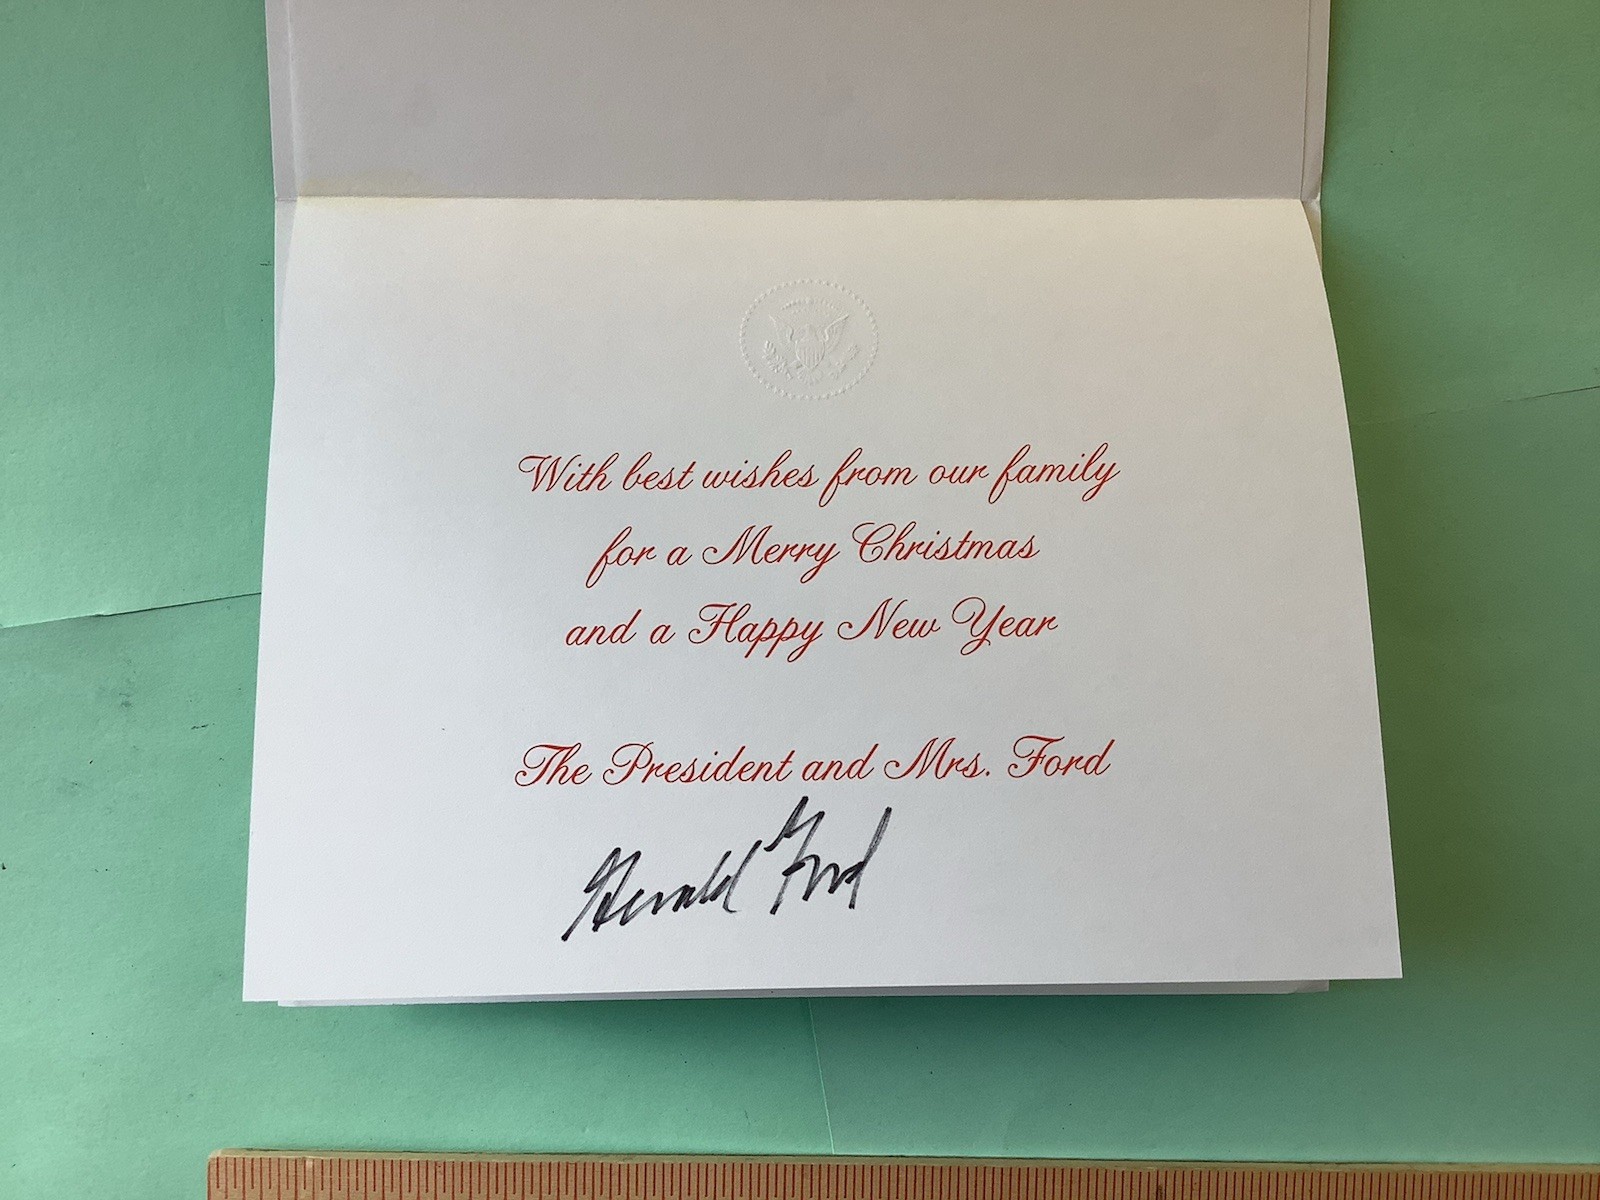 With best wishes from our family
for a Merry Christmas
and a Happy New Year
The President and Mrs. Ford
Gerald Ford